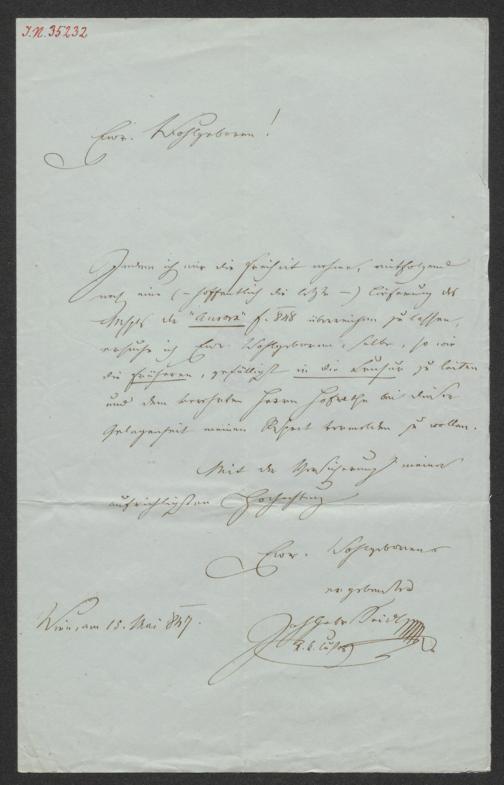 I.N. 35232
Euer. Wohlgeboren!
Indem ich mir die Freiheit nehme, mitfolgend
noch eine (– hoffentlich die letzte –) Lieferung des
Mspts der "Aurora" f. 848 überreichen zu lassen,
ersuche ich Euer. Wohlgeboren, selbe, so wie
die früheren, gefälligst in die Censur zu leiten
und dem verehrten Herrn Hofrathe bei dieser
Gelegenheit meinen Respect vermelden zu wollen.
Mit der Versicherung meiner
aufrichtigsten Hochachtung
Euer. Wohlgeboren
ergebenster
Joh Gabr Seidl
Wien, am 18. Mai 847.